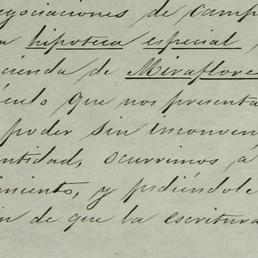 egociaciones de camp
a hipoteca especial,
cienda de Miraflores
culo que nos presenta
poder sin inconven
entidad, ocurrimos á
imiento, y pidiéndole
in de que la escritura